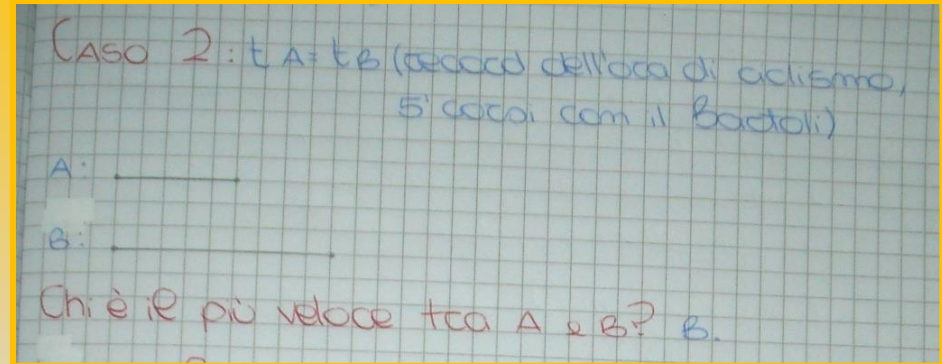 CASO 2: tA = tB (record dell'ora di ciclismo,
5' corai com il Bartoli)
A:
B:
Chi è il più veloce tra A e B? B.